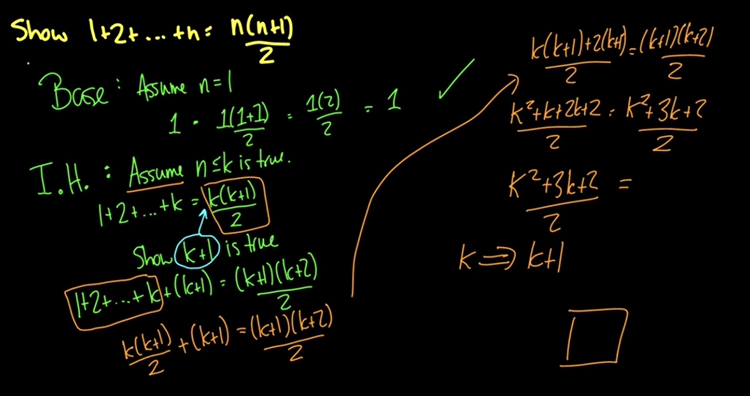 Show 1+2+...+n = n(n+1)/2
Base: Assume n=1
1 = 1(1+1)/2 = 1(2)/2 = 1 ✓
I.H.: Assume n≤k is true.
1+2+...+k = k(k+1)/2
Show k+1 is true
1+2+...+k+(k+1) = (k+1)(k+2)/2
k(k+1)/2 + (k+1) = (k+1)(k+2)/2
k(k+1)+2(k+1)/2 = (k+1)(k+2)/2
k²+k+2k+2/2 = k²+3k+2/2
k²+3k+2/2 =
k ⇒ k+1